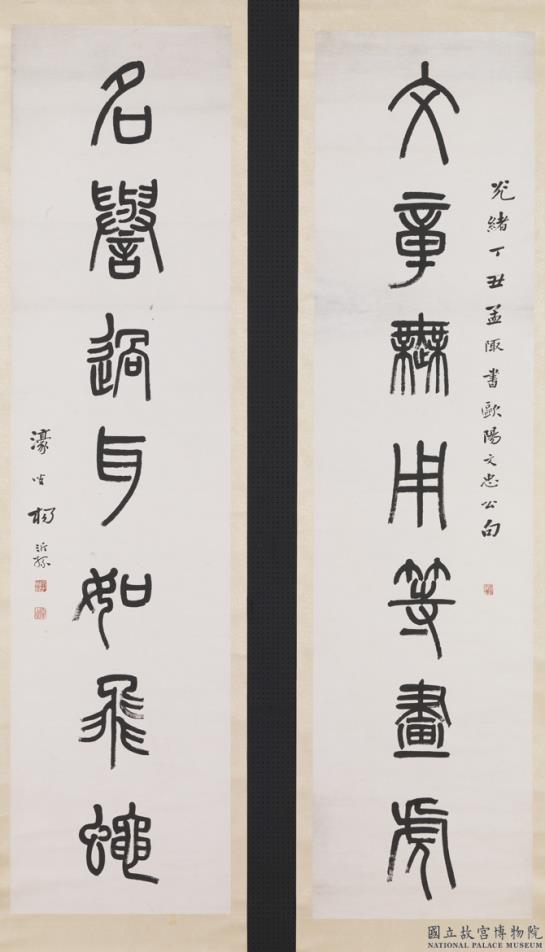 光緒丁丑孟陬書歐陽文忠公句
文章無用等畫虎
名譽過耳如飛蠅
濠叟楊沂孫
國立故宮博物院
NATIONAL PALACE MUSEUM